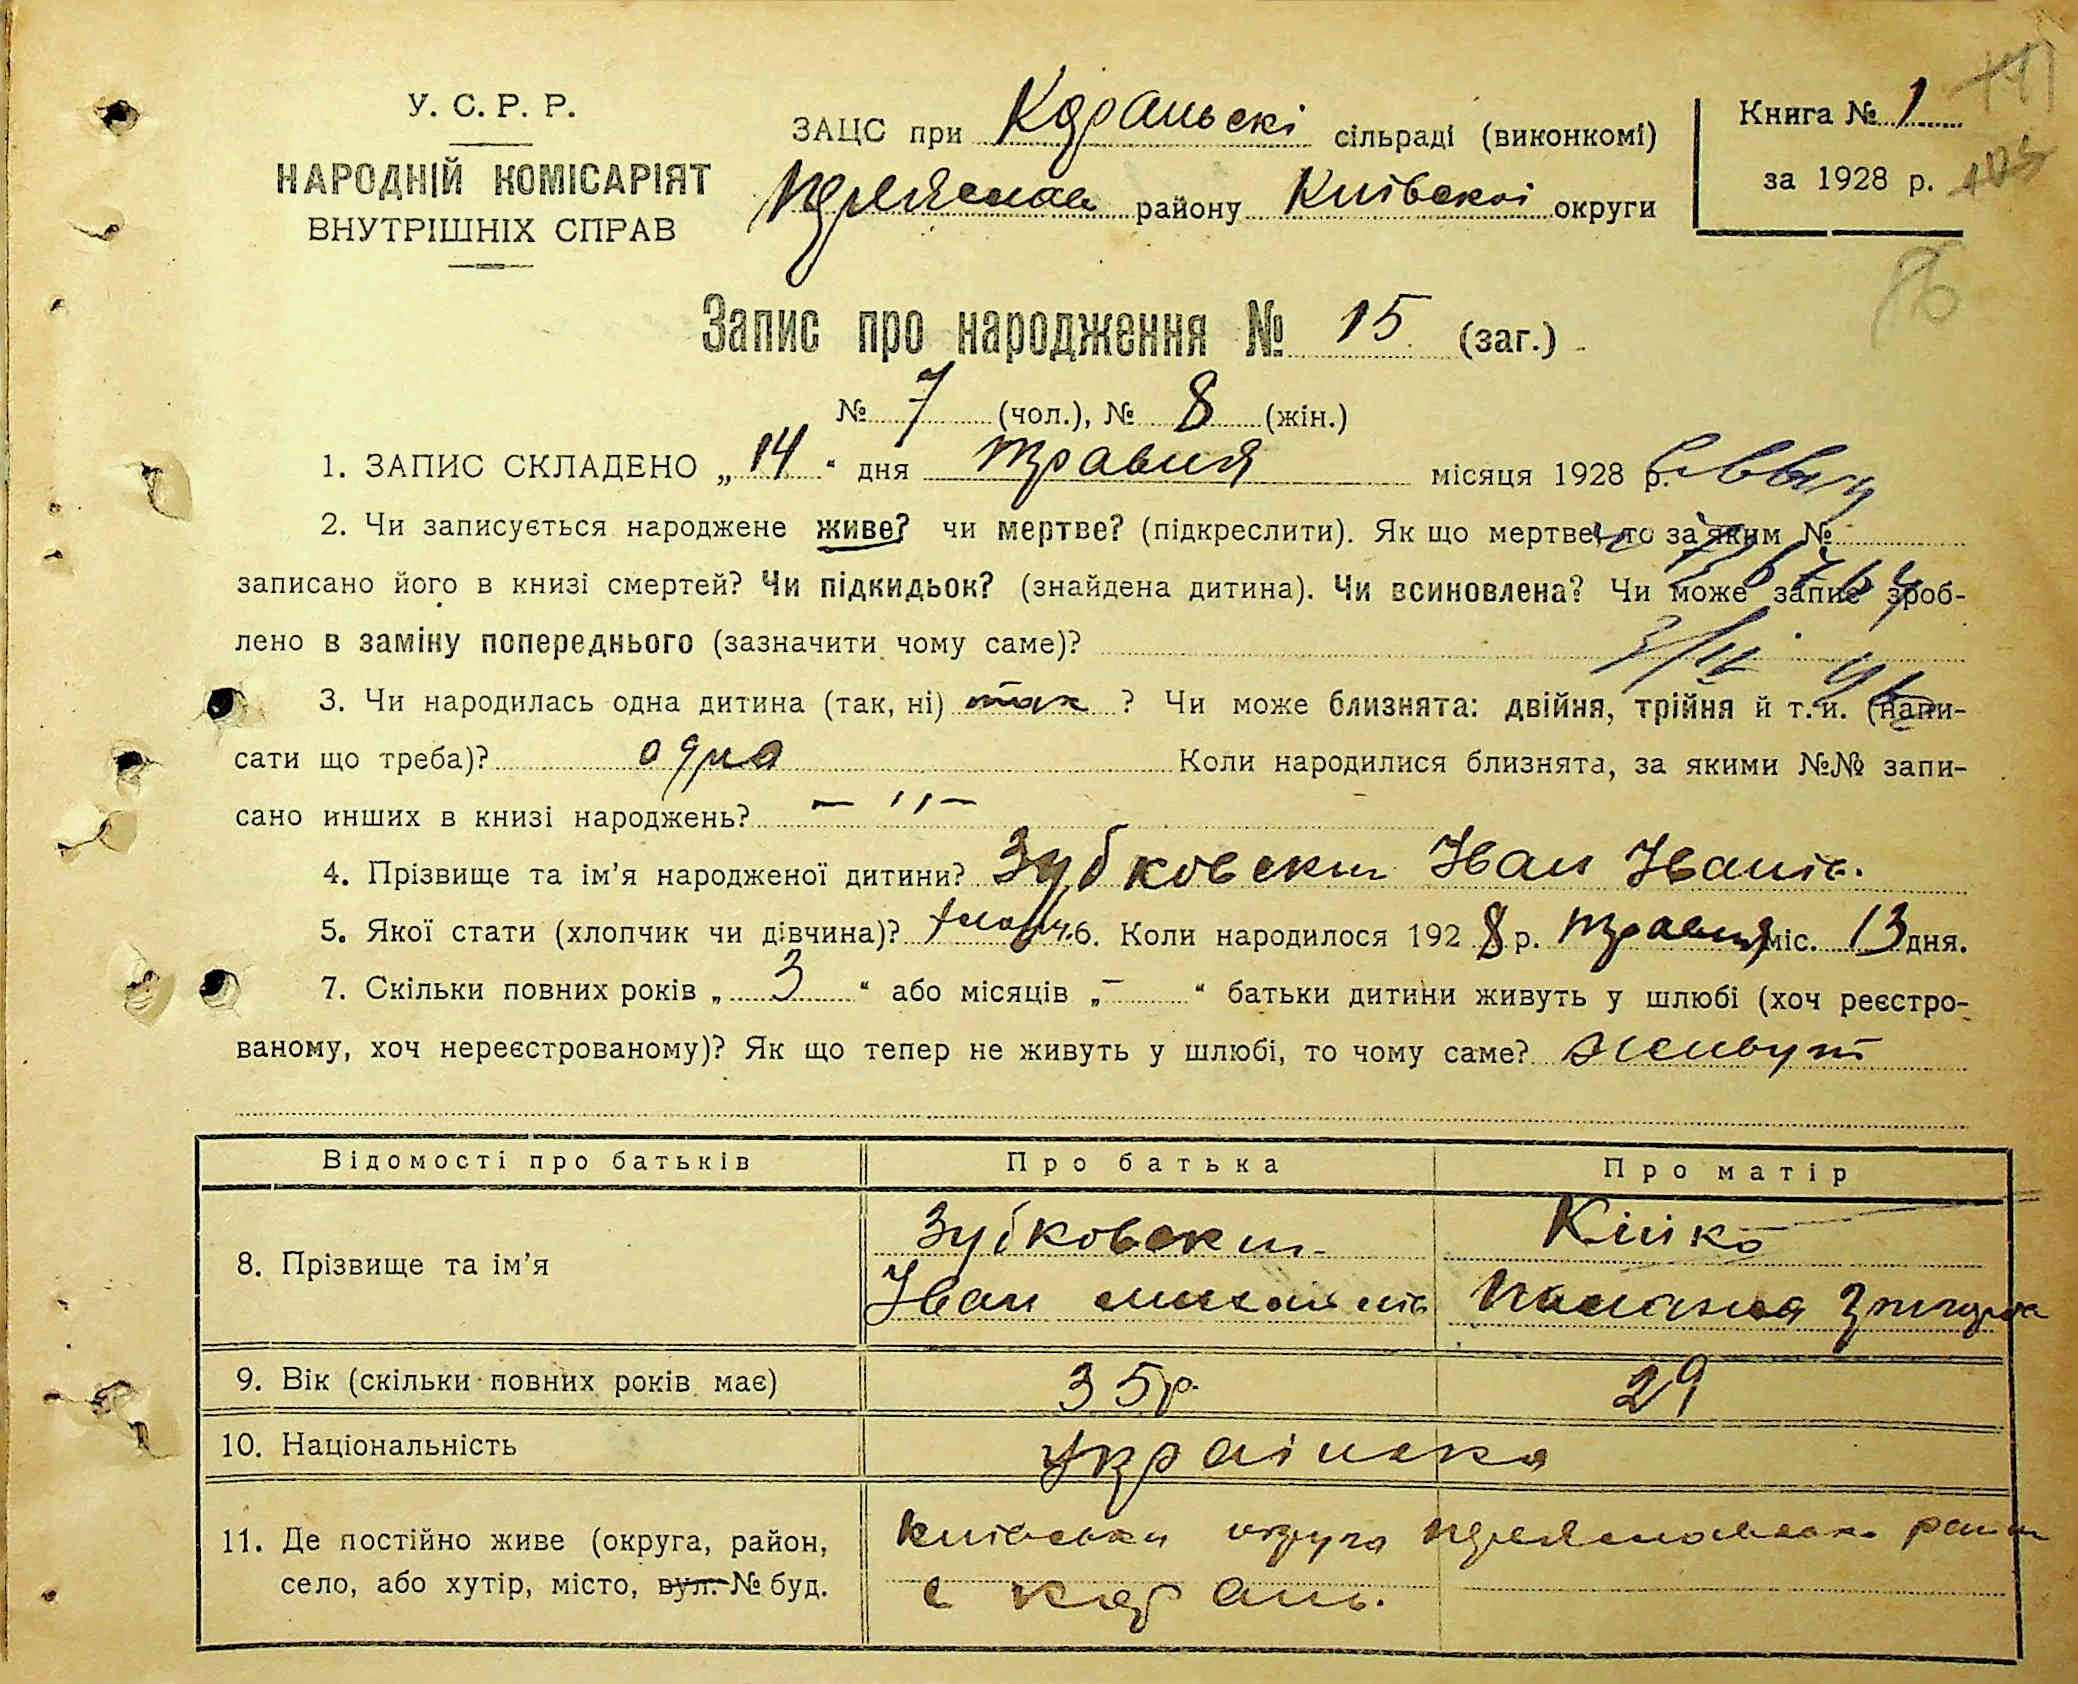 У. С. Р. Р.
НАРОДНІЙ КОМІСАРІЯТ
ВНУТРІШНІХ СПРАВ
ЗАЦС при сільраді (виконкомі)
району Київскої округи
Книга № 1
за 1928 р.
Запис про народження № 15 (заг.)
№ 7 (чол.), № 8 (жін.)
1. ЗАПИС СКЛАДЕНО „ 14 “ дня травня місяця 1928 р.
2. Чи записується народжене живе? чи мертве? (підкреслити). Як що мертве, то за яким №
записано його в книзі смертей? Чи підкидьок? (знайдена дитина). Чи всиновлена? Чи може запис зроб-
лено в заміну попереднього (зазначити чому саме)?
3. Чи народилась одна дитина (так, ні) так ? Чи може близнята: двійня, трійня й т. и. (напи-
сати що треба)? одна Коли народилися близнята, за якими №№ запи-
сано инших в книзі народжень? — ,, —
4. Прізвище та ім'я народженої дитини? Зубковски Іван Іванів.
5. Якої стати (хлопчик чи дівчина)? 6. Коли народилося 192 8 р. травня міс. 13 дня.
7. Скільки повних років „ 3 “ або місяців „ — “ батьки дитини живуть у шлюбі (хоч реєстро-
ваному, хоч нереєстрованому)? Як що тепер не живуть у шлюбі, то чому саме? живут
Відомості про батьків Про батька Про матір
8. Прізвище та ім'я Зубковски Кійко
Іван
9. Вік (скільки повних років має) 35 р. 29
10. Національність українска
11. Де постійно живе (округа, район,
село, або хутір, місто, вул. № буд.
Київська округа район
с